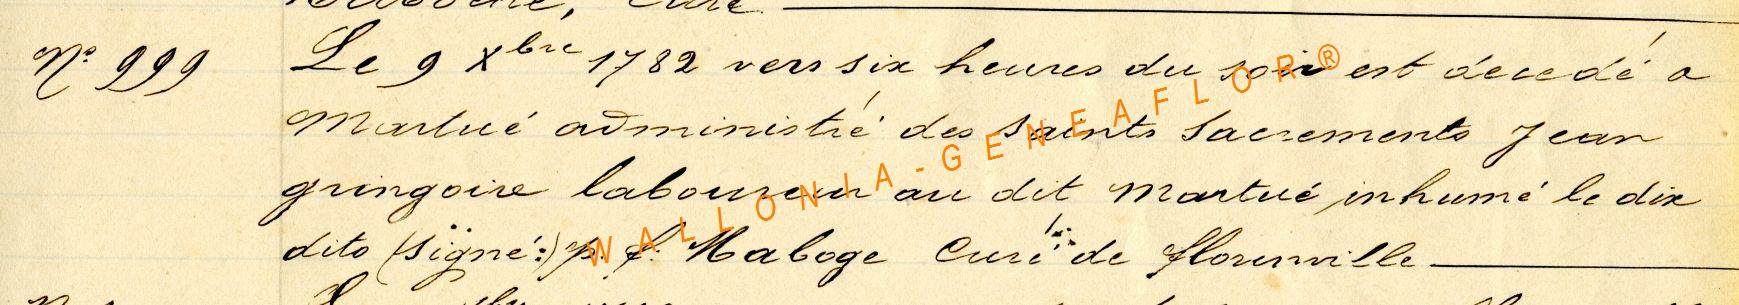 Curé
Nº 999 Le 9 Xbre 1782 vers six heures du soir est decedé a
Martué administré des Saints Sacrements Jean
gringoire laboureur au dit Martué inhumé le dix
dito (signé:) p. f. Maboge Curé de florenville
WALLONIA-GENEAFLOR®